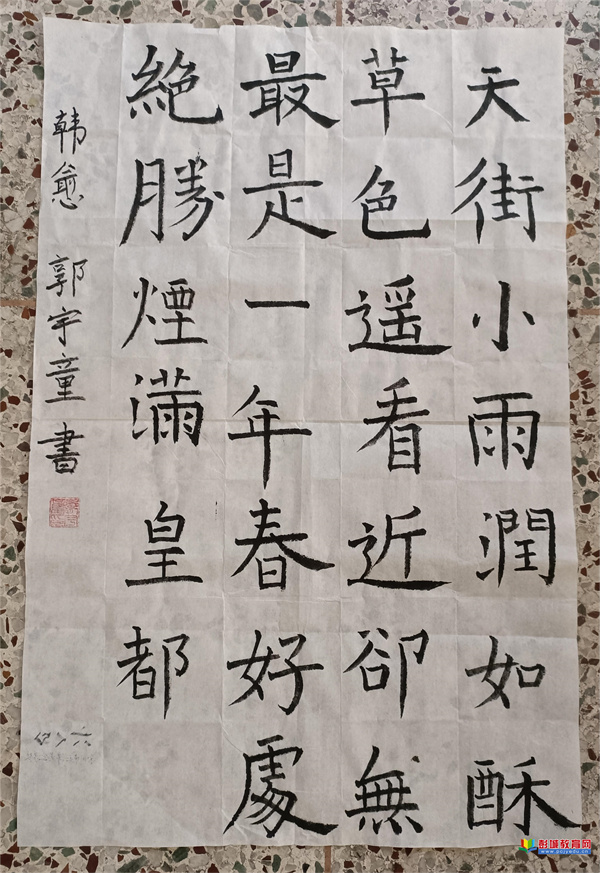 天街小雨潤如酥
草色遥看近卻無
最是一年春好處
絶勝煙滿皇都
韩愈 郭宇童 書
彭城教育网